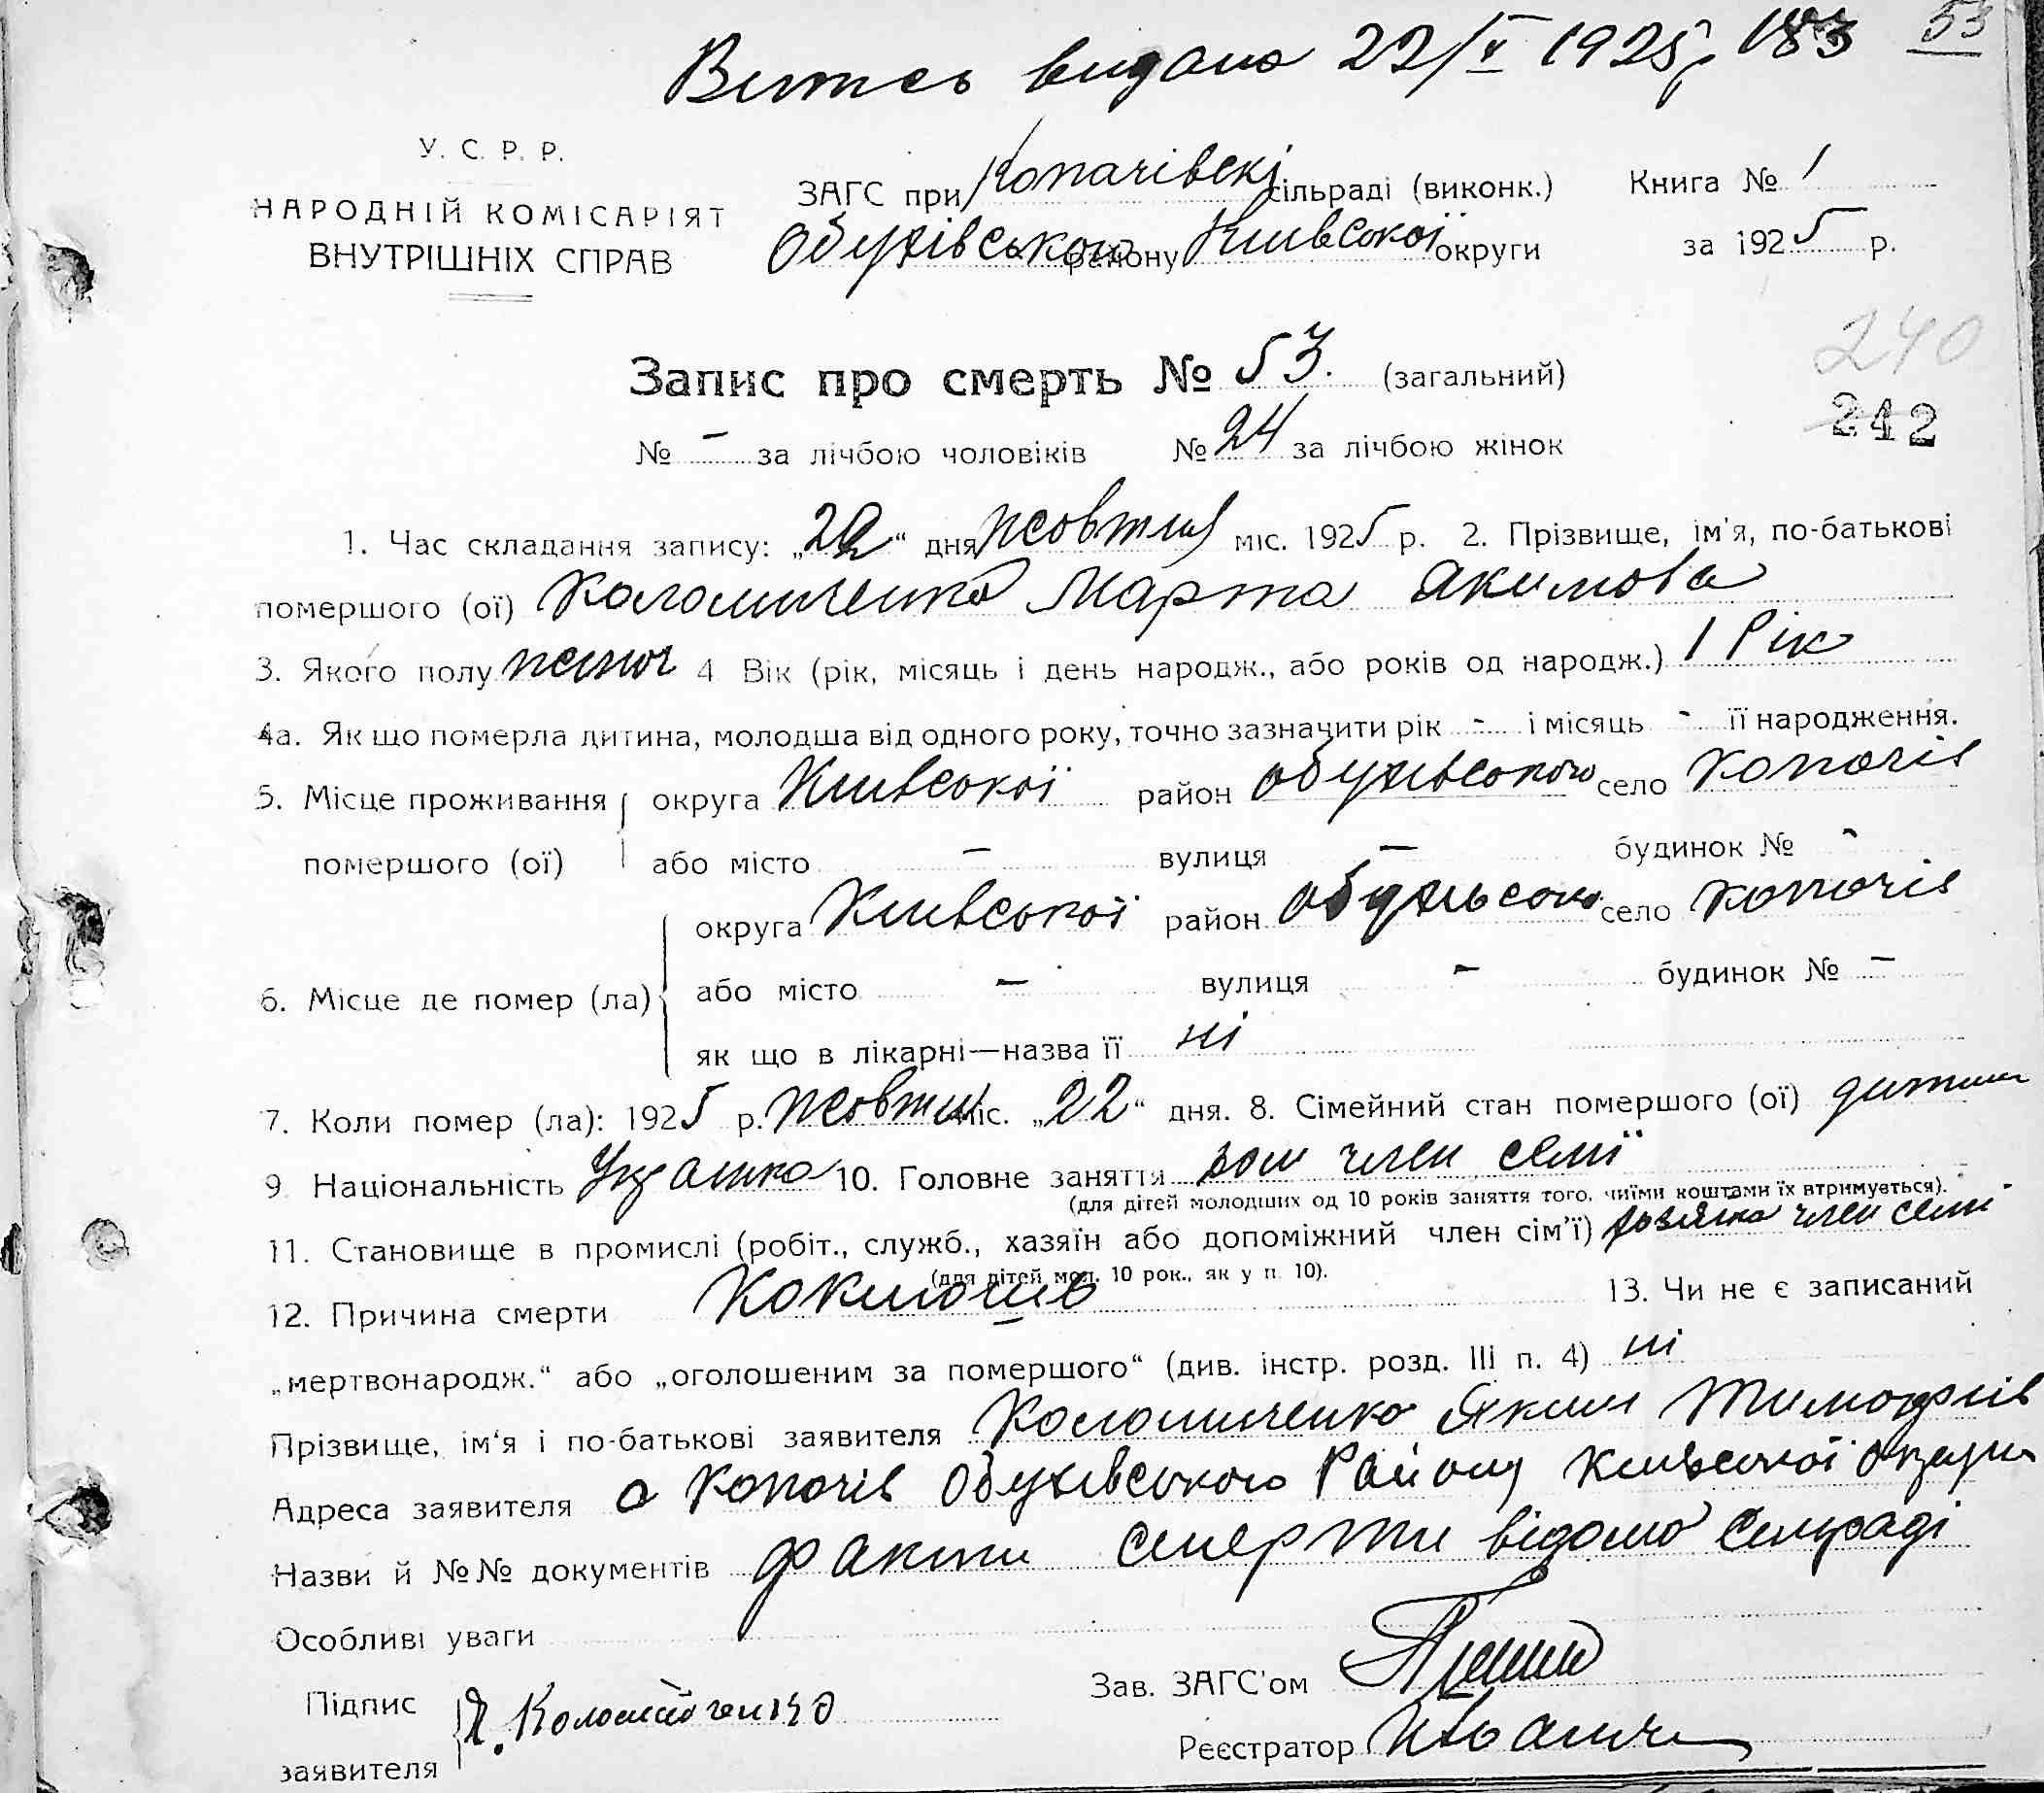 Витяг видано 22/V 1925р 183 53
У. С. Р. Р.
НАРОДНІЙ КОМІСАРІЯТ
ВНУТРІШНІХ СПРАВ
ЗАГС при Копачівскі сільраді (виконк.) Книга № 1
Обухівського району Київської округи за 1925 р.
240
Запис про смерть № 53. (загальний)
242
№ – за лічбою чоловіків № 24 за лічбою жінок
1. Час складання запису: „22“ дня жовтня міс. 1925 р. 2. Прізвище, ім'я, по-батькові
помершого (ої) Коломиченко Марта Якимова
3. Якого полу жіноч 4 Вік (рік, місяць і день народж., або років од народж.) 1 Рік
4а. Як що померла дитина, молодша від одного року, точно зазначити рік - і місяць - її народження.
5. Місце проживання округа Київської район обухівського село Копачів
помершого (ої) або місто – вулиця – будинок № -
округа Київської район село Копачів
6. Місце де помер (ла) або місто – вулиця - будинок № –
як що в лікарні—назва її ні
7. Коли помер (ла): 1925 р. жовтня міс. „22“ дня. 8. Сімейний стан помершого (ої) дитина
9 Національність Українка 10. Головне заняття член семї
(для дітей молодших од 10 років заняття того, чиїми коштами їх втримується).
11. Становище в промислі (робіт., служб., хазяїн або допоміжний член сім'ї) член семї
(для дітей мол. 10 рок., як у п. 10).
12. Причина смерти Коклюшів 13. Чи не є записаний
„мертвонародж.“ або „оголошеним за помершого“ (див. інстр. розд. III п. 4) ні
Прізвище, ім'я і по-батькові заявителя Коломиченко Яким Тимофіїв
Адреса заявителя с Копачів Обухівського Району Київської округи
Назви й №№ документів факти смерти відомо Сельраді
Особливі уваги
Підпис
заявителя Я. Коломійченко
Зав. ЗАГС'ом
Реєстратор